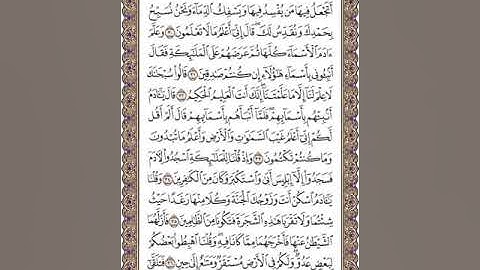 أَتَجْعَلُ فِيهَا مَن يُفْسِدُ فِيهَا وَيَسْفِكُ ٱلدِّمَآءَ وَنَحْنُ نُسَبِّحُ
بِحَمْدِكَ وَنُقَدِّسُ لَكَ ۖ قَالَ إِنِّىٓ أَعْلَمُ مَا لَا تَعْلَمُونَ ٣٠ وَعَلَّمَ
ءَادَمَ ٱلْأَسْمَآءَ كُلَّهَا ثُمَّ عَرَضَهُمْ عَلَى ٱلْمَلَٰٓئِكَةِ فَقَالَ
أَنۢبِـُٔونِى بِأَسْمَآءِ هَٰٓؤُلَآءِ إِن كُنتُمْ صَٰدِقِينَ ٣١ قَالُوا۟ سُبْحَٰنَكَ
لَا عِلْمَ لَنَآ إِلَّا مَا عَلَّمْتَنَآ ۖ إِنَّكَ أَنتَ ٱلْعَلِيمُ ٱلْحَكِيمُ ٣٢ قَالَ يَٰٓـَٔادَمُ
أَنۢبِئْهُم بِأَسْمَآئِهِمْ ۖ فَلَمَّآ أَنۢبَأَهُم بِأَسْمَآئِهِمْ قَالَ أَلَمْ أَقُل
لَّكُمْ إِنِّىٓ أَعْلَمُ غَيْبَ ٱلسَّمَٰوَٰتِ وَٱلْأَرْضِ وَأَعْلَمُ مَا تُبْدُونَ
وَمَا كُنتُمْ تَكْتُمُونَ ٣٣ وَإِذْ قُلْنَا لِلْمَلَٰٓئِكَةِ ٱسْجُدُوا۟ لِـَٔادَمَ
فَسَجَدُوٓا۟ إِلَّآ إِبْلِيسَ أَبَىٰ وَٱسْتَكْبَرَ وَكَانَ مِنَ ٱلْكَٰفِرِينَ ٣٤ وَقُلْنَا
يَٰٓـَٔادَمُ ٱسْكُنْ أَنتَ وَزَوْجُكَ ٱلْجَنَّةَ وَكُلَا مِنْهَا رَغَدًا حَيْثُ
شِئْتُمَا وَلَا تَقْرَبَا هَٰذِهِ ٱلشَّجَرَةَ فَتَكُونَا مِنَ ٱلظَّٰلِمِينَ ٣٥ فَأَزَلَّهُمَا
ٱلشَّيْطَٰنُ عَنْهَا فَأَخْرَجَهُمَا مِمَّا كَانَا فِيهِ ۖ وَقُلْنَا ٱهْبِطُوا۟ بَعْضُكُمْ
لِبَعْضٍ عَدُوٌّ ۖ وَلَكُمْ فِى ٱلْأَرْضِ مُسْتَقَرٌّ وَمَتَٰعٌ إِلَىٰ حِينٍ ٣٦ فَتَلَقَّىٰٓ